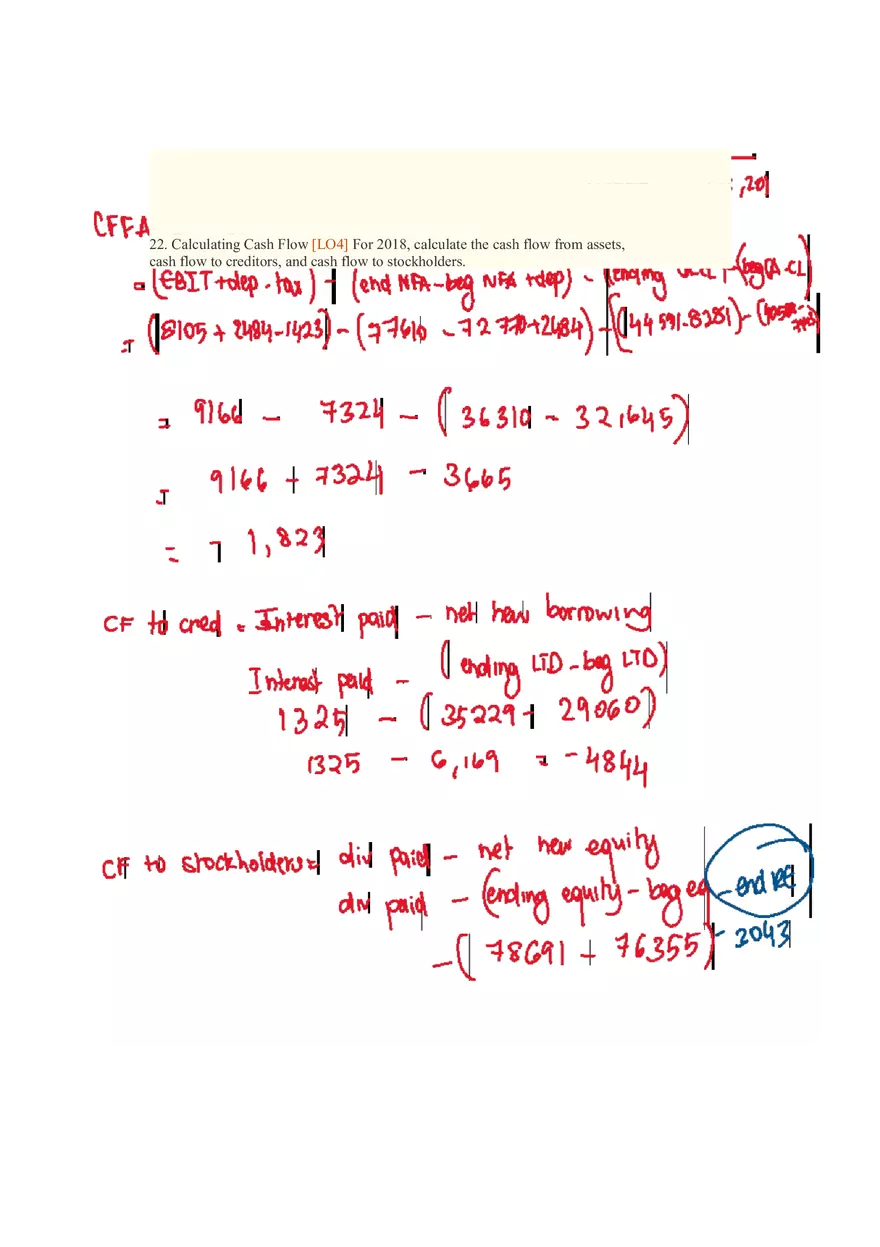 ,201
CFFA
22. Calculating Cash Flow [LO4] For 2018, calculate the cash flow from assets,
cash flow to creditors, and cash flow to stockholders.
= (EBIT + dep - tax) - (end NFA - beg NFA + dep) - (ending - (beg CA - CL)
= (8105 + 2484 - 1423) - (77610 - 72770 + 2484) - ((44591 - 8281) - (
= 9166 - 7324 - (36310 - 32,645)
= 9166 + 7324 - 3665
= 7 1,823
CF to cred = Interest paid - net new borrowing
Interest paid - (ending LTD - beg LTD)
1325 - (35229 + 29060)
1325 - 6,169 = -4844
CF to stockholders = div paid - net new equity
div paid - (ending equity - beg eq - end RE
-(78691 + 76355) - 2043